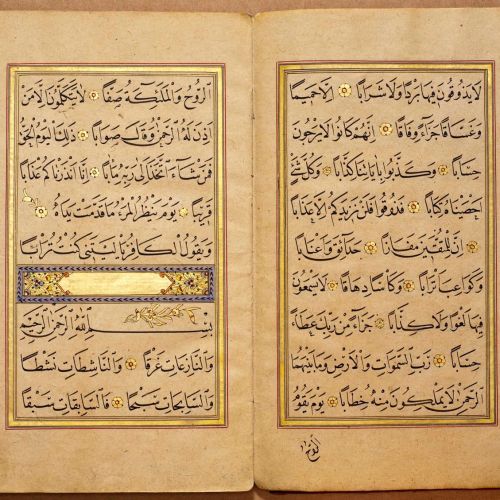 لَا يَذُوقُونَ فِيهَا بَرْدًا وَلَا شَرَابًا اِلَّا حَمِيمًا
وَغَسَّاقًا جَزَاءً وِفَاقًا اِنَّهُمْ كَانُوا لَا يَرْجُونَ
حِسَابًا وَكَذَّبُوا بِاٰيَاتِنَا كِذَّابًا وَكُلَّ شَيْءٍ
اَحْصَيْنَاهُ كِتَابًا فَذُوقُوا فَلَنْ نَزِيدَكُمْ اِلَّا عَذَابًا
اِنَّ لِلْمُتَّقِينَ مَفَازًا حَدَائِقَ وَاَعْنَابًا
وَكَوَاعِبَ اَتْرَابًا وَكَأْسًا دِهَاقًا لَا يَسْمَعُونَ
فِيهَا لَغْوًا وَلَا كِذَّابًا جَزَاءً مِنْ رَبِّكَ عَطَاءً
حِسَابًا رَبِّ السَّمٰوَاتِ وَالْاَرْضِ وَمَا بَيْنَهُمَا
الرَّحْمٰنِ لَا يَمْلِكُونَ مِنْهُ خِطَابًا يَوْمَ يَقُومُ
الروح
الرُّوحُ وَالْمَلٰئِكَةُ صَفًّا لَا يَتَكَلَّمُونَ اِلَّا مَنْ
اَذِنَ لَهُ الرَّحْمٰنُ وَقَالَ صَوَابًا ذٰلِكَ الْيَوْمُ الْحَقُّ
فَمَنْ شَاءَ اتَّخَذَ اِلٰى رَبِّهِ مَاٰبًا اِنَّا اَنْذَرْنَاكُمْ عَذَابًا
قَرِيبًا يَوْمَ يَنْظُرُ الْمَرْءُ مَا قَدَّمَتْ يَدَاهُ
وَيَقُولُ الْكَافِرُ يَا لَيْتَنِي كُنْتُ تُرَابًا
بِسْمِ اللّٰهِ الرَّحْمٰنِ الرَّحِيمِ
وَالنَّازِعَاتِ غَرْقًا وَالنَّاشِطَاتِ نَشْطًا
وَالسَّابِحَاتِ سَبْحًا فَالسَّابِقَاتِ سَبْقًا